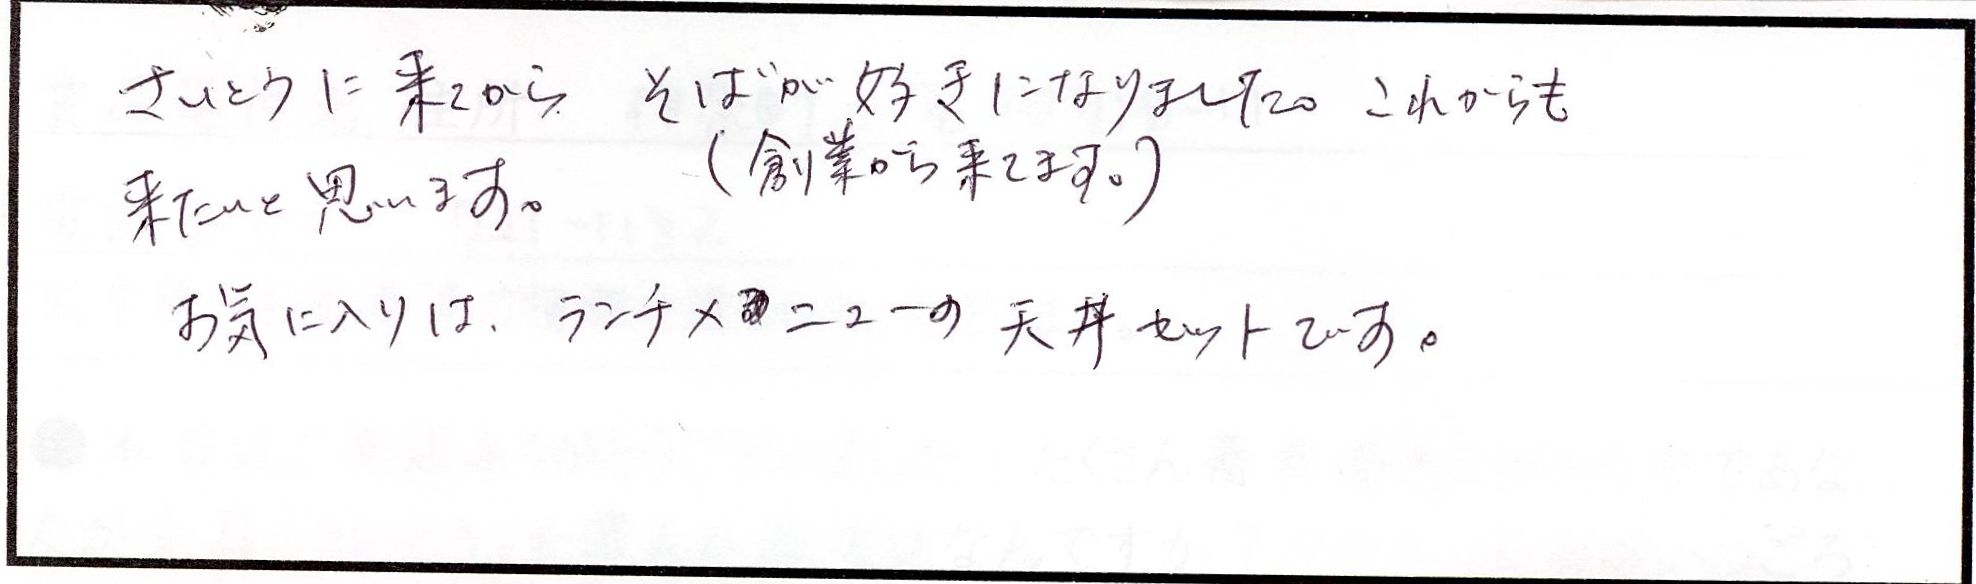 さいとうに来てから そばが好きになりました。これからも
(創業から来てます。)
来たいと思います。
お気に入りは、ランチメニューの天丼セットです。